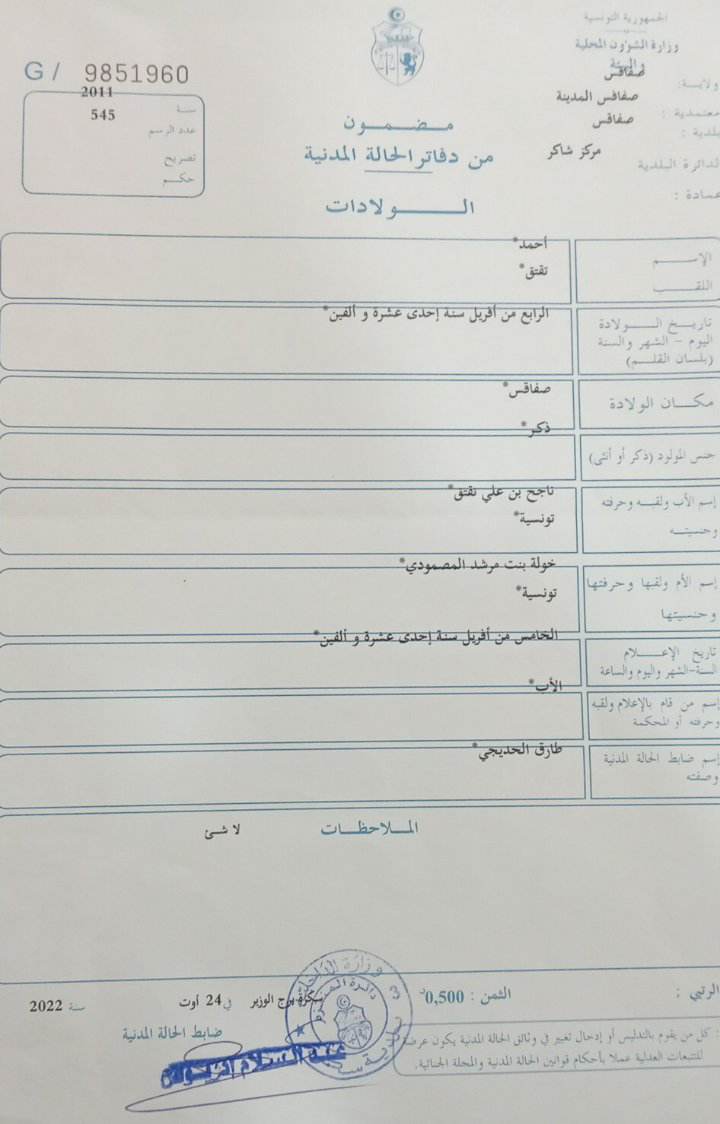 الجمهورية التونسية
وزارة الشؤون المحلية
والبيئة
ولاية: صفاقس
معتمدية : صفاقس المدينة
بلدية : صفاقس
الدائرة البلدية مركز شاكر
عمادة :
G / 9851960
سنة 2011
عدد الرسم 545
تصريح
حكم
مضمون
من دفاتر الحالة المدنية
الولادات
الإسم أحمد*
اللقب تقتق*
تاريخ الولادة
اليوم - الشهر والسنة
(بلسان القلم)
الرابع من أفريل سنة إحدى عشرة و ألفين*
مكان الولادة صفاقس*
جنس المولود (ذكر أو أنثى) ذكر*
إسم الأب ولقبه وحرفته
وجنسيته
ناجح بن علي تقتق*
تونسية*
إسم الأم ولقبها وحرفتها
وجنسيتها
خولة بنت مرشد المصمودي*
تونسية*
تاريخ الإعلام
السنة-الشهر واليوم والساعة
الخامس من أفريل سنة إحدى عشرة و ألفين*
إسم من قام بالإعلام ولقبه
وحرفته أو المحكمة
الأب*
إسم ضابط الحالة المدنية
وصفته
طارق الحديجي*
الملاحظات
لا شئ
الرتبي : الثمن : 0,500د
سكرة برج الوزير في 24 أوت سنة 2022
ضابط الحالة المدنية
عبد السلام
كل من يقوم بالتدليس أو إدخال تغيير في وثائق الحالة المدنية يكون عرضة
للتتبعات العدلية عملا بأحكام قوانين الحالة المدنية والمجلة الجنائية.